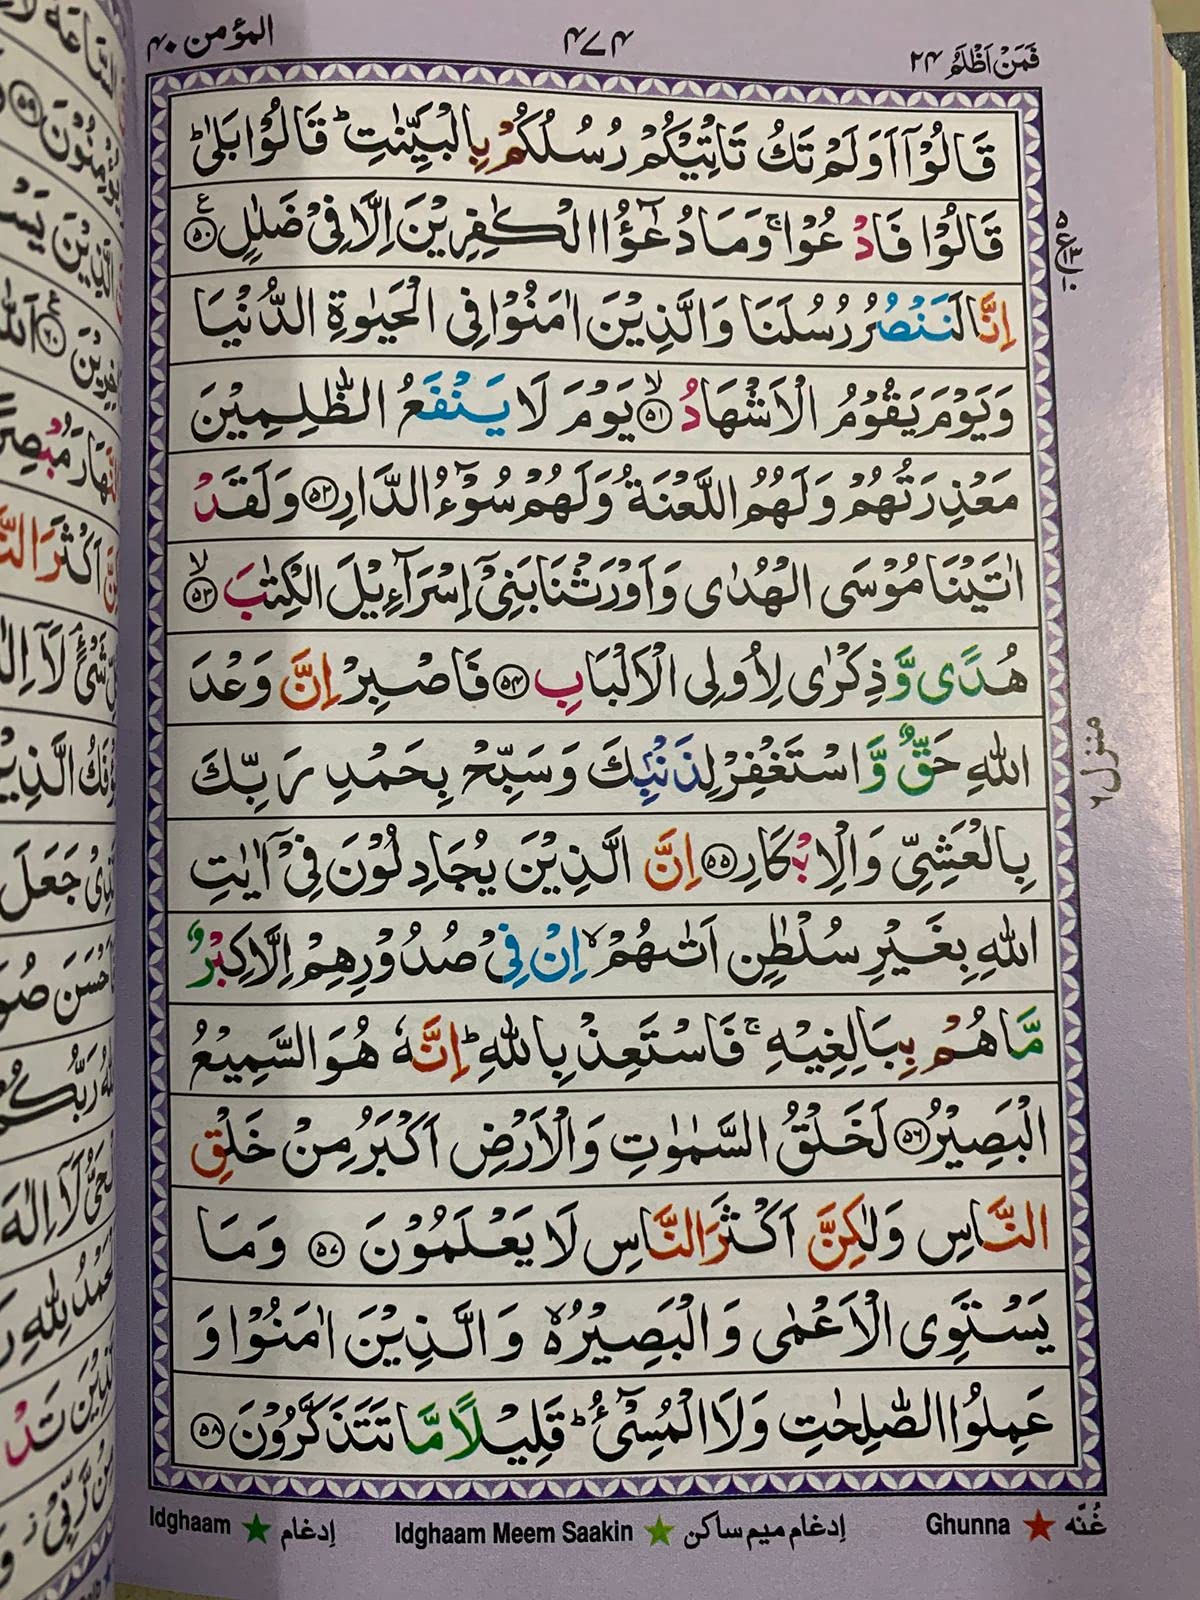 المؤمن ۴۰
۴۷۴
فمن اظلم ۲۴
قَالُوْۤا اَوَلَمْ تَكُ تَاْتِيْكُمْ رُسُلُكُمْ بِالْبَيِّنٰتِ ؕ قَالُوْا بَلٰى ؕ
قَالُوْا فَادْعُوْا ۚ وَمَا دُعٰٓؤُا الْكٰفِرِيْنَ اِلَّا فِيْ ضَلٰلٍ ۝۵۰
اِنَّا لَنَنْصُرُ رُسُلَنَا وَالَّذِيْنَ اٰمَنُوْا فِي الْحَيٰوةِ الدُّنْيَا
وَيَوْمَ يَقُوْمُ الْاَشْهَادُ ۝۵۱ۙ يَوْمَ لَا يَنْفَعُ الظّٰلِمِيْنَ
مَعْذِرَتُهُمْ وَلَهُمُ اللَّعْنَةُ وَلَهُمْ سُوْٓءُ الدَّارِ ۝۵۲ وَلَقَدْ
اٰتَيْنَا مُوْسَى الْهُدٰى وَاَوْرَثْنَا بَنِيْۤ اِسْرَآءِيْلَ الْكِتٰبَ ۝۵۳ۙ
هُدًى وَّذِكْرٰى لِاُولِي الْاَلْبَابِ ۝۵۴ فَاصْبِرْ اِنَّ وَعْدَ
اللّٰهِ حَقٌّ وَّاسْتَغْفِرْ لِذَنْۢبِكَ وَسَبِّحْ بِحَمْدِ رَبِّكَ
بِالْعَشِيِّ وَالْاِبْكَارِ ۝۵۵ اِنَّ الَّذِيْنَ يُجَادِلُوْنَ فِيْۤ اٰيٰتِ
اللّٰهِ بِغَيْرِ سُلْطٰنٍ اَتٰىهُمْ ۙ اِنْ فِيْ صُدُوْرِهِمْ اِلَّا كِبْرٌ
مَّا هُمْ بِبَالِغِيْهِ ۚ فَاسْتَعِذْ بِاللّٰهِ ؕ اِنَّهٗ هُوَ السَّمِيْعُ
الْبَصِيْرُ ۝۵۶ لَخَلْقُ السَّمٰوٰتِ وَالْاَرْضِ اَكْبَرُ مِنْ خَلْقِ
النَّاسِ وَلٰكِنَّ اَكْثَرَ النَّاسِ لَا يَعْلَمُوْنَ ۝۵۷ وَمَا
يَسْتَوِي الْاَعْمٰى وَالْبَصِيْرُ ۙ۬ وَالَّذِيْنَ اٰمَنُوْا وَ
عَمِلُوا الصّٰلِحٰتِ وَلَا الْمُسِيْٓءُ ؕ قَلِيْلًا مَّا تَتَذَكَّرُوْنَ ۝۵۸
منزل ۶
غُنَّه Ghunna
ادغام ميم ساكن Idghaam Meem Saakin
ادغام Idghaam